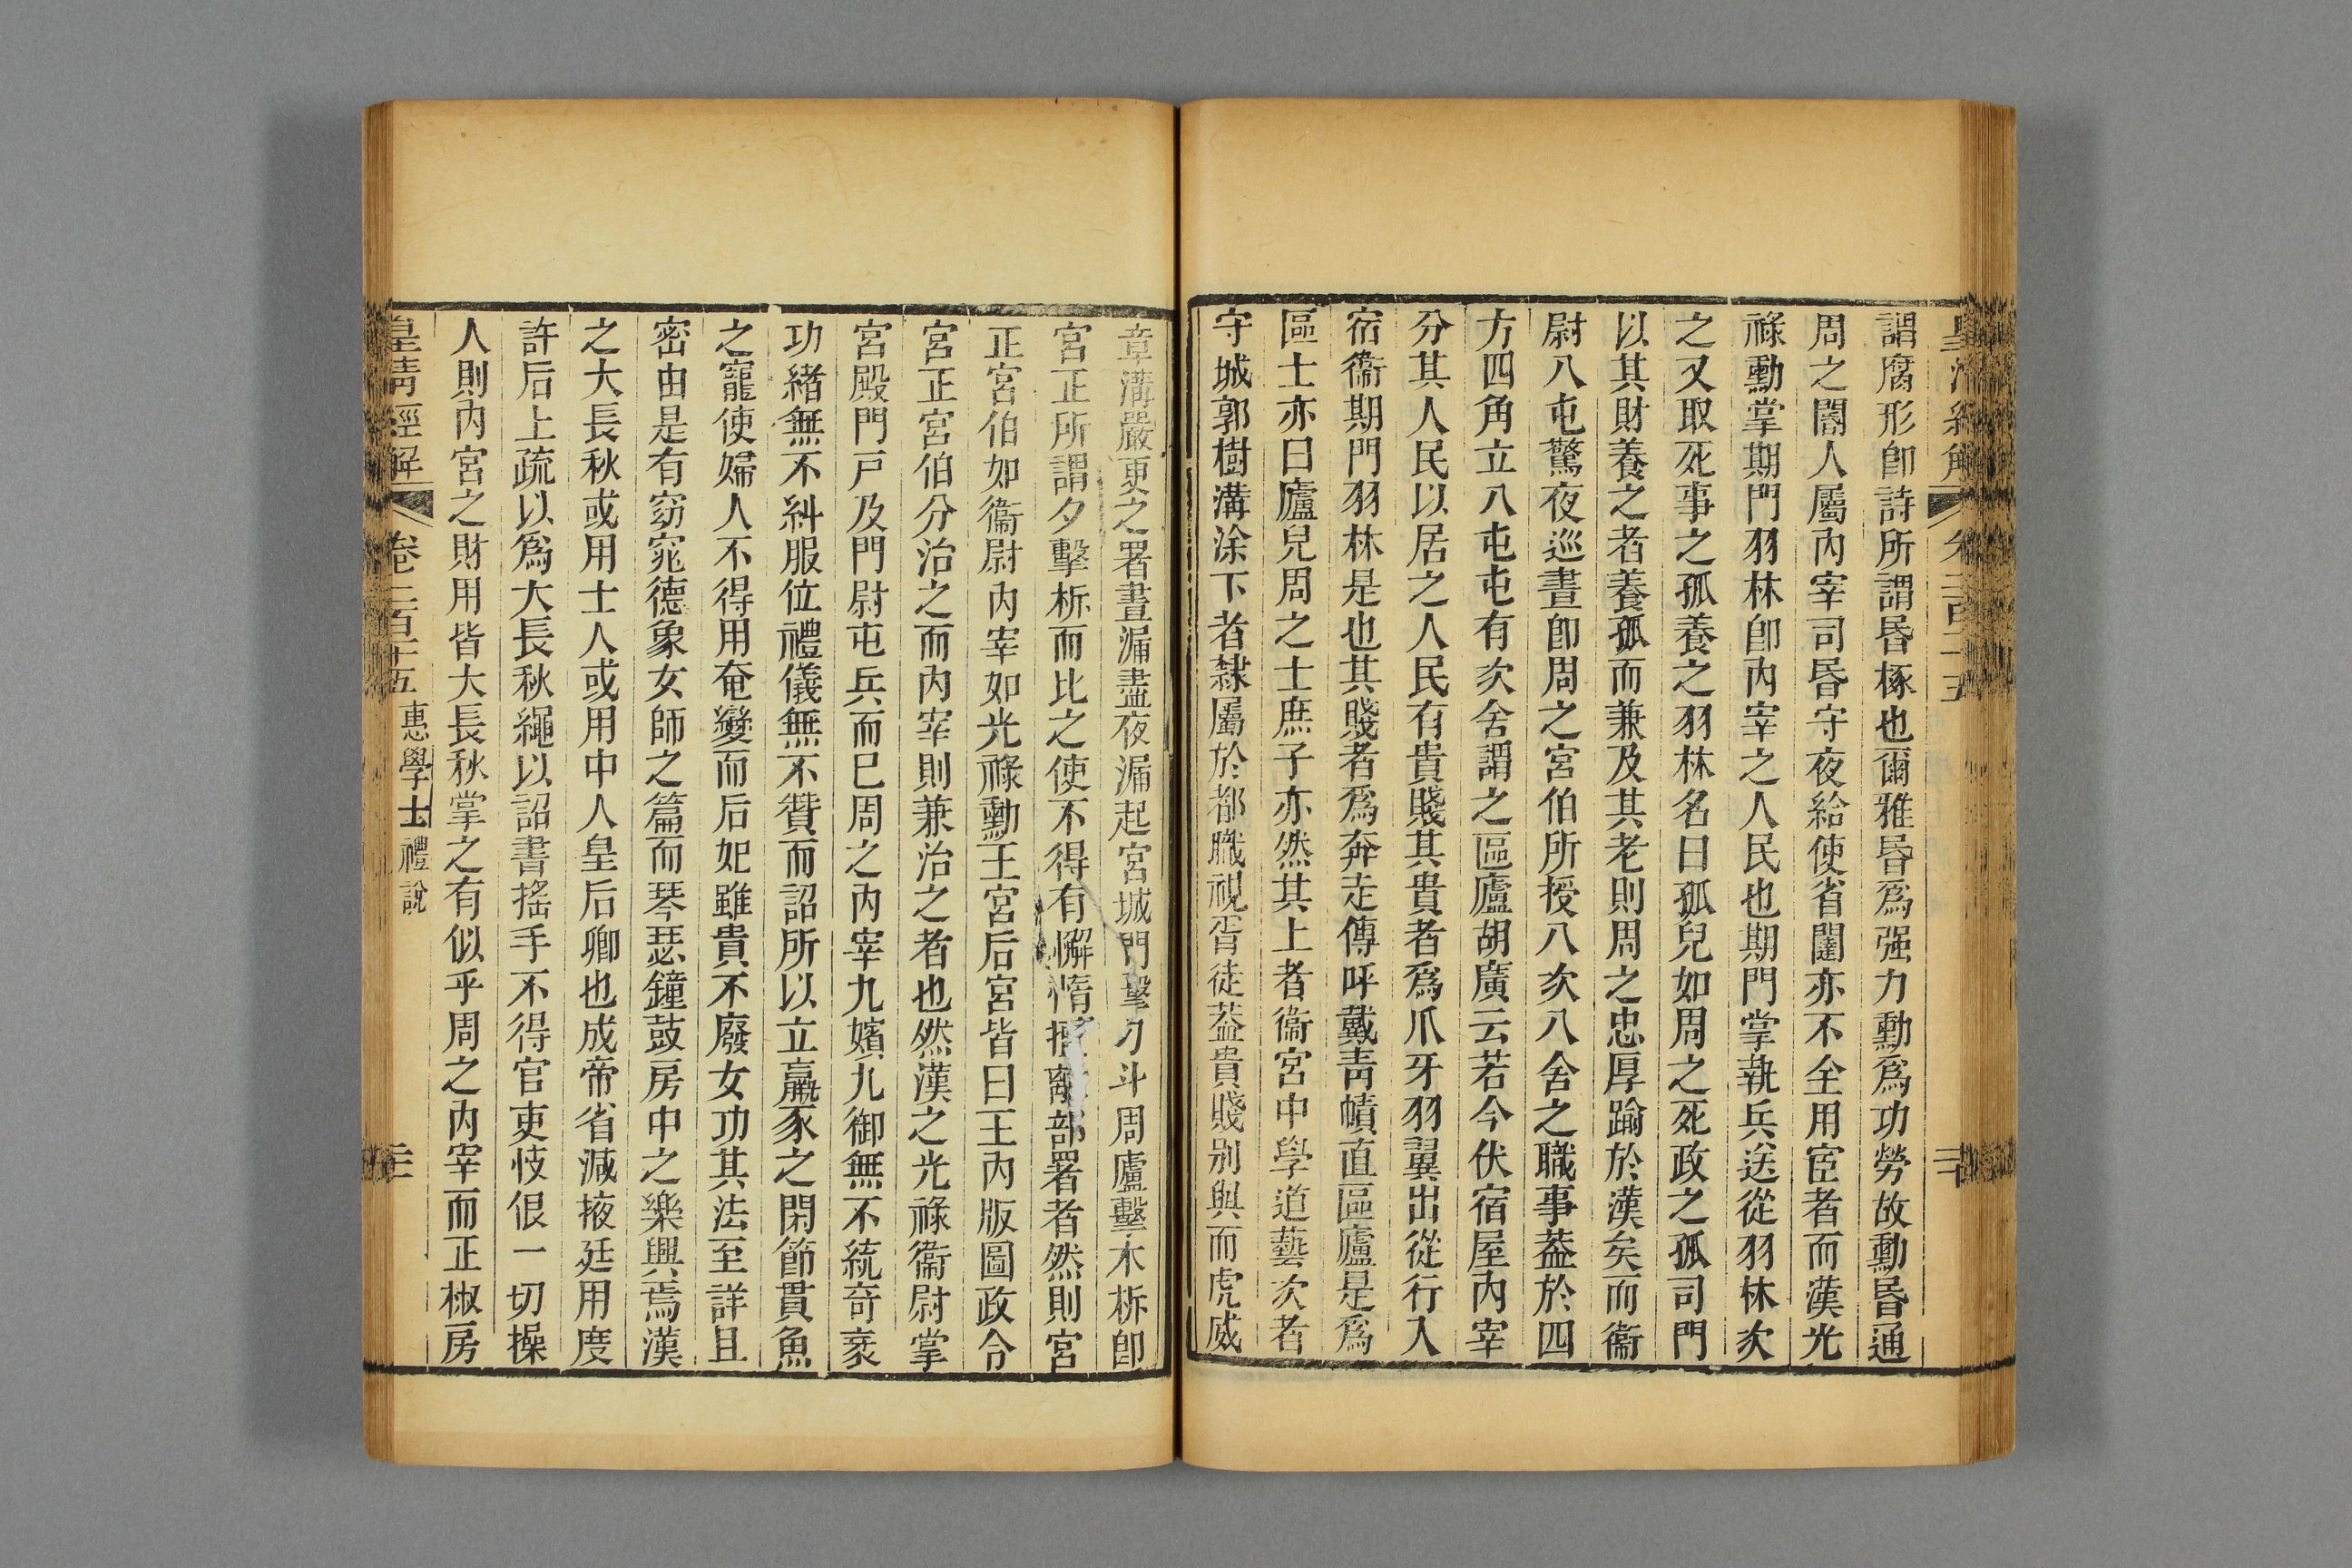 謂腐形卽詩所謂昬椓也爾雅昬爲强力勳爲功勞故勳昬通
周之閽人屬內宰司昬守夜給使省闥亦不全用宦者而漢光
祿勳掌期門羽林卽內宰之人民也期門掌執兵送從羽林次
之又取死事之孤養之羽林名曰孤兒如周之死政之孤司門
以其財養之者養孤而兼及其老則周之忠厚踰於漢矣而衞
尉八屯驚夜巡晝卽周之宮伯所授八次八舍之職事葢於四
方四角立八屯屯有次舍謂之區廬胡廣云若今伏宿屋內宰
分其人民以居之人民有貴賤其貴者爲爪牙羽翼出從行入
宿衞期門羽林是也其賤者爲奔走傳呼戴靑幘直區廬是爲
區士亦曰廬兒周之士庶子亦然其上者衞宮中學道藝次者
守城郭樹溝涂下者隸屬於都職視胥徒葢貴賤別與而虎威
章溝嚴更之署晝漏盡夜漏起宮城門擊刀斗周廬擊木柝卽
宮正所謂夕擊柝而比之使不得有懈惰離部署者然則宮
正宮伯如衞尉內宰如光祿勳王宮后宮皆曰王內版圖政令
宮正宮伯分治之而內宰則兼治之者也然漢之光祿衞尉掌
宮殿門戸及門尉屯兵而巳周之內宰九嬪九御無不統奇衺
功緖無不糾服位禮儀無不贊而詔所以立羸豕之閑節貫魚
之寵使婦人不得用奄變而后妃雖貴不廢女功其法至詳且
密由是有窈窕德象女師之篇而琴瑟鐘鼓房中之樂興焉漢
之大長秋或用士人或用中人皇后卿也成帝省減掖廷用度
許后上疏以爲大長秋繩以詔書搖手不得官吏忮佷一切操
人則內宮之財用皆大長秋掌之有似乎周之內宰而正椒房
皇淸經解 卷二百十五 惠學士禮說